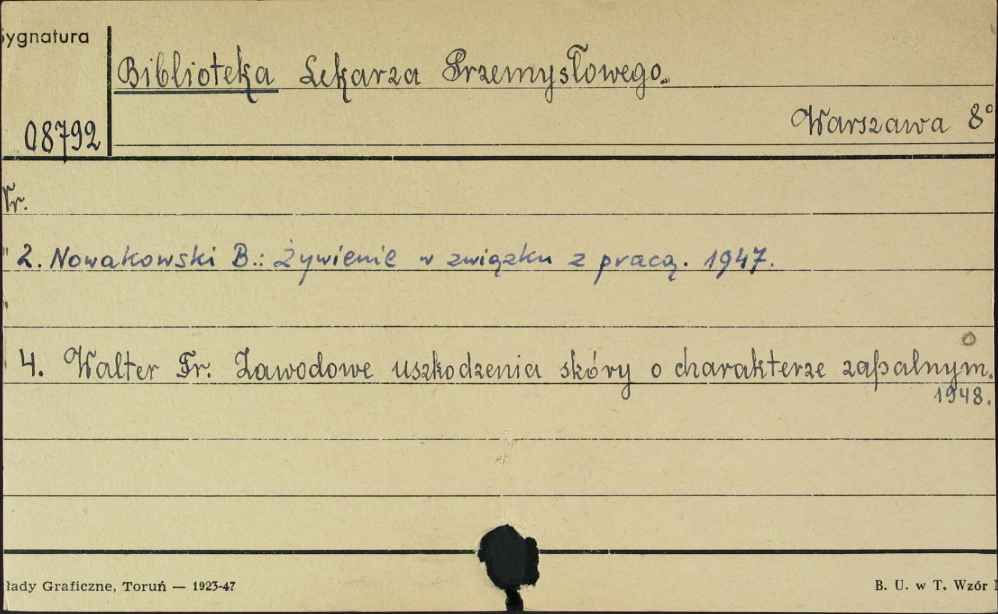 Sygnatura
Biblioteka Lekarza Przemysłowego.
Warszawa 8°
08792
Nr.
" 2. Nowakowski B.: Żywienie w związku z pracą. 1947.
"
4. Walter Fr. Zawodowe uszkodzenia skóry o charakterze zapalnym.
1948.
łady Graficzne, Toruń — 1923-47
B. U. w T. Wzór